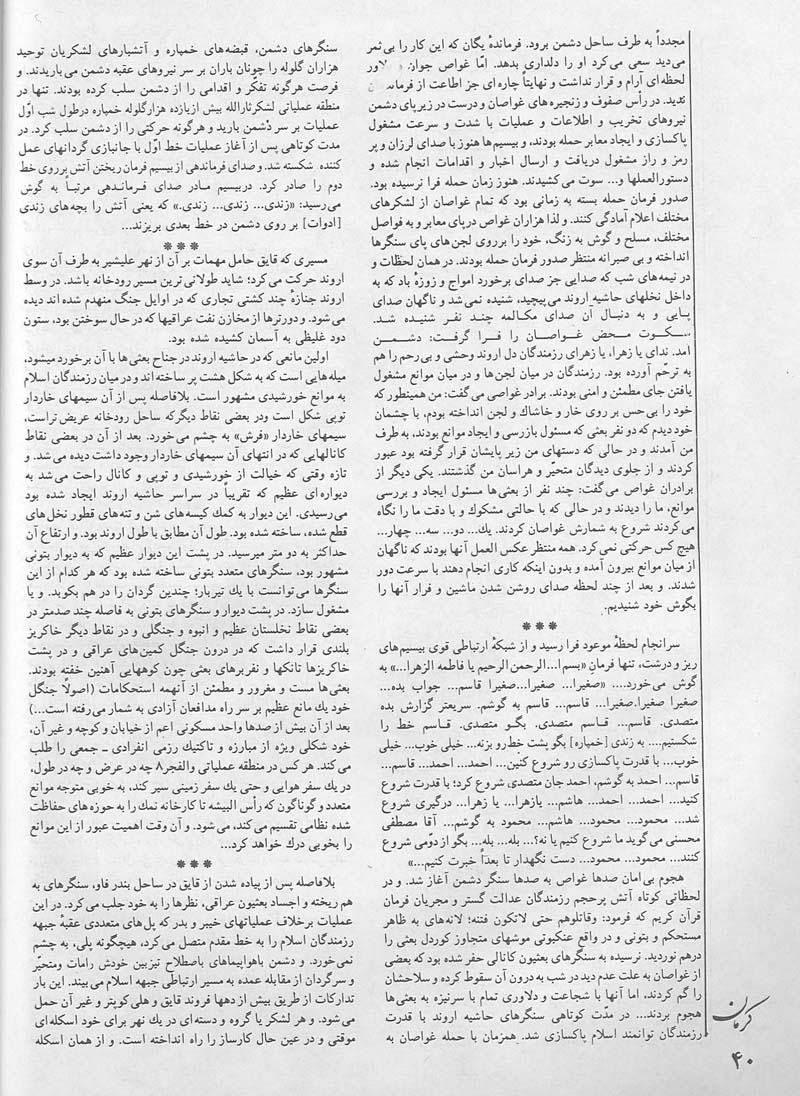 مجدداً به طرف ساحل دشمن برود. فرماندهٔ یگان که این کار را بی‌ثمر
می‌دید سعی می‌کرد او را دلداری بدهد. امّا غواص جوان
لحظه‌ای آرام و قرار نداشت و نهایتاً چاره‌ای جز اطاعت از
ندید. در رأس صفوف و زنجیره‌های غواصان و درست در زیر پای دشمن
نیروهای تخریب و اطلاعات و عملیات با شدت و سرعت مشغول
پاکسازی و ایجاد معابر حمله بودند، و بیسیم‌ها هنوز با صدای لرزان و پر
رمز و راز مشغول دریافت و ارسال اخبار و اقدامات انجام شده و
دستورالعملها و... سوت می‌کشیدند. هنوز زمان حمله فرا نرسیده بود.
صدور فرمان حمله بسته به زمانی بود که تمام غواصان از لشکرهای
مختلف اعلام آمادگی کنند. و لذا هزاران غواص درپای معابر و به فواصل
مختلف، مسلح و گوش به زنگ، خود را برروی لجن‌های پای سنگرها
انداخته و بی صبرانه منتظر صدور فرمان حمله بودند. در همان لحظات و
در نیمه‌های شب که صدایی جز صدای برخورد امواج و زوزهٔ باد که به
داخل نخلهای حاشیه اروند می‌پیچید، شنیده نمی‌شد و ناگهان صدای
پایی و به دنبال آن صدای مکالمه چند نفر شنیده شد.
سکوت محض غواصان را فرا گرفت: دشمن
آمد. ندای یا زهرا، یا زهرای رزمندگان دل اروند وحشی و بی‌رحم را هم
به ترحّم آورده بود. رزمندگان در میان لجن‌ها و در میان موانع مشغول
یافتن جای مطمئن و امنی بودند. برادر غواصی می‌گفت: من همینطور که
خود را بی‌حس بر روی خار و خاشاک و لجن انداخته بودم، با چشمان
خود دیدم که دو نفر بعثی که مسئول بازرسی و ایجاد موانع بودند، به طرف
من آمدند و در حالی که دستهای من زیر پایشان قرار گرفته بود عبور
کردند و از جلوی دیدگان متحیّر و هراسان من گذشتند. یکی دیگر از
برادران غواص می‌گفت: چند نفر از بعثی‌ها مسئول ایجاد و بررسی
موانع، ما را دیدند و در حالی که با حالتی مشکوک و با دقت ما را نگاه
می‌کردند شروع به شمارش غواصان کردند. یك... دو... سه... چهار...
هیچ کس حرکتی نمی‌کرد. همه منتظر عکس العمل آنها بودند که ناگهان
از میان موانع بیرون آمده و بدون اینکه کاری انجام دهند با سرعت دور
شدند. و بعد از چند لحظه صدای روشن شدن ماشین و فرار آنها را
بگوش خود شنیدیم.
***
سرانجام لحظهٔ موعود فرا رسید و از شبکهٔ ارتباطی قوی بیسیم‌های
ریز و درشت، تنها فرمانِ «بسم ا... الرحمن الرحیم یا فاطمه الزهرا...» به
گوش می‌خورد.... «صفیرا... صفیرا...صفیرا قاسم... جواب بده...
صفیرا صفیرا.صفیرا... قاسم... قاسم به گوشم. سریعتر گزارش بده
متصدی. قاسم... قاسم متصدی. بگو متصدی. قاسم خط را
شکستیم.... به زندی [خمپاره] بگو پشت خط‌رو بزنه... خیلی خوب... خیلی
خوب... با قدرت پاکسازی رو شروع کنین... احمد... احمد... قاسم...
قاسم... احمد به گوشم، احمد جان متصدی، شروع کرد؛ با قدرت شروع
کنید... احمد... احمد... هاشم... یازهرا... یا زهرا... درگیری شروع
شد... محمود... محمود... هاشم... محمود به گوشم... آقا مصطفی
محسنی می‌گوید ما شروع کنیم یا نه؟... بله... بله... بگو از دوّمی شروع
کنند... محمود... محمود... دست نگهدار تا بعداً خبرت کنیم...»
هجوم بی‌امان صدها غواص به صدها سنگر دشمن آغاز شد. و در
لحظاتی کوتاه آتش پرحجم رزمندگان عدالت گستر و مجریان فرمان
قرآن کریم که فرمود: وقاتلوهم حتی لاتکون فتنه؛ لانه‌های به ظاهر
مستحکم و بتونی و در واقع عنکبوتی موشهای متجاوز کوردل بعثی را
درهم نوردید. نرسیده به سنگرهای بعثیون کانالی حفر شده بود که بعضی
از غواصان به علت عدم دید در شب به درون آن سقوط کرده و سلاحشان
را گم کردند، اما آنها با شجاعت و دلاوری تمام با سرنیزه به بعثی‌ها
هجوم بردند... در مدّت کوتاهی سنگرهای حاشیه اروند با قدرت
رزمندگان توانمند اسلام پاکسازی شد. همزمان با حمله غواصان به
سنگرهای دشمن، قبضه‌های خمپاره و آتشبارهای لشکریان توحید
هزاران گلوله را چونان باران بر سر نیروهای عقبه دشمن می‌باریدند. و
فرصت هرگونه تفکّر و اقدامی را از دشمن سلب کرده بودند. تنها در
منطقه عملیاتی لشکر ثارالله بیش از یازده هزار گلوله خمپاره درطول شب اوّل
عملیات بر سر دشمن بارید و هرگونه حرکتی را از دشمن سلب کرد. در
مدت کوتاهی پس از آغاز عملیات خط اوّل با جانبازی گردانهای عمل
کننده شکسته شد. و صدای فرماندهی از بیسیم فرمان ریختن آتش برروی خط
دوم را صادر کرد. دربیسیم مادر صدای فرماندهی مرتباً به گوش
می‌رسید: «زندی... زندی... زندی.» که یعنی آتش را بچه‌های زندی
[ادوات] بر روی دشمن در خط بعدی بریزند...
***
مسیری که قایق حامل مهمات بر آن از نهر علیشیر به طرف آن سوی
اروند حرکت می‌کرد؛ شاید طولانی ترین مسیر رودخانه باشد. در وسط
اروند جنازهٔ چند کشتی تجاری که در اوایل جنگ منهدم شده اند دیده
می‌شود. و دورترها از مخازن نفت عراقیها که در حال سوختن بود، ستون
دود غلیظی به آسمان کشیده شده بود.
اولین مانعی که در حاشیه اروند در جناح بعثی‌ها با آن برخورد میشود،
میله‌هایی است که به شکل هشت پر ساخته‌اند و در میان رزمندگان اسلام
به موانع خورشیدی مشهور است. بلافاصله پس از آن سیمهای خاردار
توپی شکل است ودر بعضی نقاط دیگرکه ساحل رودخانه عریض‌تراست،
سیمهای خاردار «فرش» به چشم می‌خورد. بعد از آن در بعضی نقاط
کانالهایی که در انتهای آن سیمهای خاردار وجود داشت دیده می‌شد. و
تازه وقتی که خیالت از خورشیدی و توپی و کانال راحت می‌شد به
دیواره‌ای عظیم که تقریباً در سراسر حاشیه اروند ایجاد شده بود
می‌رسیدی. این دیوار به کمک کیسه‌های شن و تنه‌های قطور نخل‌های
قطع شده، ساخته شده بود. طول آن مطابق با طول اروند بود. و ارتفاع آن
حداکثر به دو متر میرسید. در پشت این دیوار عظیم که به دیوار بتونی
مشهور بود، سنگرهای متعدد بتونی ساخته شده بود که هر کدام از این
سنگرها می‌توانست با یك تیربار؛ چندین گردان را در هم بکوبد. و یا
مشغول سازد. در پشت دیوار و سنگرهای بتونی به فاصله چند صدمتر در
بعضی نقاط نخلستان عظیم و انبوه و جنگلی و در نقاط دیگر خاکریز
بلندی قرار داشت که در درون جنگل کمین‌های عراقی و در پشت
خاکریزها تانکها و نفربرهای بعثی چون کوههایی آهنین خفته بودند.
بعثی‌ها مست و مغرور و مطمئن از آنهمه استحکامات (اصولاً جنگل
خود یك مانع عظیم بر سر راه مدافعان آزادی به شمار می‌رفته است...)
بعد از آن بیش از صدها واحد مسکونی اعم از خیابان و کوچه و غیر آن،
خود شکلی ویژه از مبارزه و تاکتیك رزمی انفرادی ـ جمعی را طلب
می‌کند. هر کس در منطقه عملیاتی والفجر۸ چه در عرض و چه در طول،
در یك سفر هوایی و حتی یك سفر زمینی سیر کند، به خوبی متوجه موانع
متعدد و گوناگون که رأس البیشه تا کارخانه نمك را به حوزه های حفاظت
شده نظامی تقسیم می‌کند، می‌شود. و آن وقت اهمیت عبور از این موانع
را بخوبی درك خواهد کرد...
***
بلافاصله پس از پیاده شدن از قایق در ساحل بندر فاو، سنگرهای به
هم ریخته و اجساد بعثیون عراقی، نظرها را به خود جلب می‌کرد. در این
عملیات برخلاف عملیاتهای خیبر و بدر که پل‌های متعددی عقبهٔ جبهه
رزمندگان اسلام را به خط مقدم متصل می‌کرد، هیچگونه پلی، به چشم
نمی‌خورد. و دشمن باهواپیماهای باصطلاح تیزبین خودش رامات ومتحیّر
و سرگردان از مقابله عمده به مسیر ارتباطی جبهه اسلام می‌بیند. این بار
تدارکات از طریق بیش از دهها فروند قایق و هلی‌کوپتر و غیر آن حمل
می‌شود. و هر لشکر یا گروه و دسته‌ای در یك نهر برای خود اسکله‌ای
موقتی و در عین حال کارساز را راه انداخته است. و از همان اسکله
کرمان
۴۰